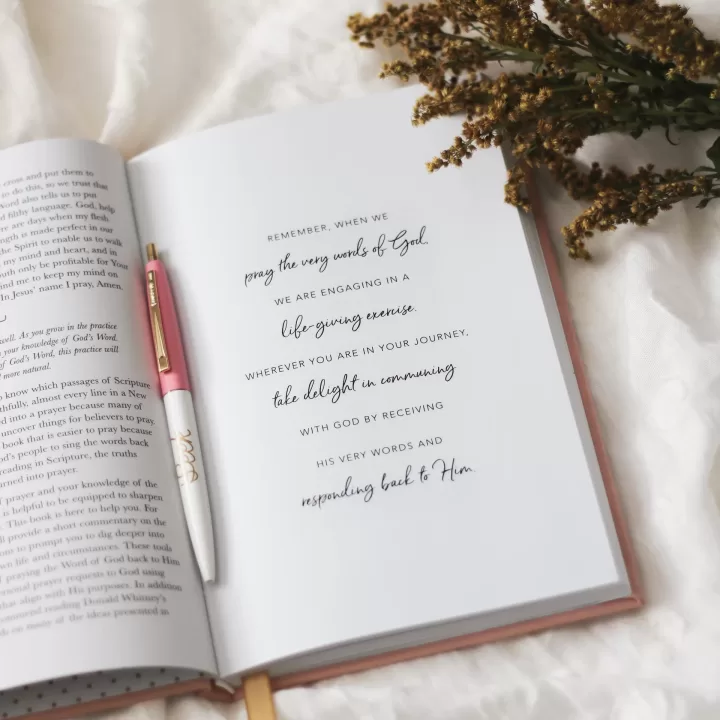 cross and put them to
to do this, so we trust that
Word also tells us to put
nd filthy language. God, help
ere are days when my flesh
ength is made perfect in our
the Spirit to enable us to walk
my mind and heart, and in
outh only be profitable for Your
ind me to keep my mind on
In Jesus' name I pray, Amen.
well. As you grow in the practice
your knowledge of God's Word.
of God's Word, this practice will
more natural.
o know which passages of Scripture
thfully, almost every line in a New
ed into a prayer because many of
uncover things for believers to pray.
book that is easier to pray because
od's people to say the words back
reading in Scripture, the truths
urned into prayer.
f prayer and your knowledge of the
is helpful to be equipped to sharpen
. This book is here to help you. For
ll provide a short commentary on the
ons to prompt you to dig deeper into
wn life and circumstances. These tools
praying the Word of God back to Him
rsonal prayer requests to God using
that align with His purposes. In addition
mmend reading Donald Whitney's
h on many of the ideas presented in
seek
REMEMBER, WHEN WE
pray the very words of God,
WE ARE ENGAGING IN A
life-giving exercise.
WHEREVER YOU ARE IN YOUR JOURNEY,
take delight in communing
WITH GOD BY RECEIVING
HIS VERY WORDS AND
responding back to Him.